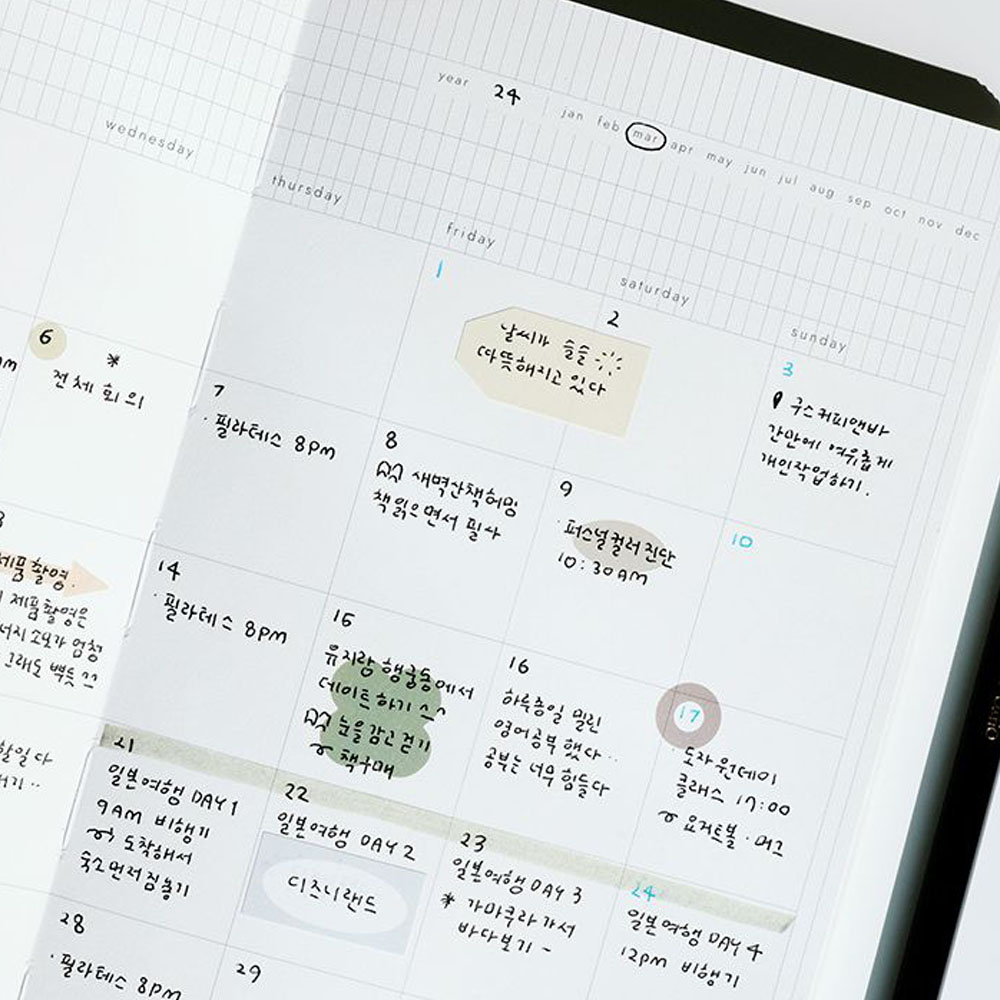 year 24 jan feb mar apr may jun jul aug sep oct nov dec
wednesday
thursday
friday
saturday
sunday
1
2
날씨가 슬슬
따뜻해지고 있다
3
쿠스커피앤바
간만에 여유롭게
개인작업하기.
6
*
전체 회의
7
· 필라테스 8pm
8
새벽산책허밍
책읽으면서 필사
9
· 퍼스널컬러 진단
10:30AM
10
제품촬영.
제품촬영은
소모가 엄청
그래도 뿌듯 ^^
14
· 필라테스 8pm
15
유지랑 행궁동에서
데이트하기 ^^
눈을 감고 걷기
책구매
16
하루종일 밀린
영어공부 했다..
공부는 너무 힘들다
17
· 도자 원데이
클래스 17:00
요거트볼 · 머그
21
일본여행 DAY 1
9AM 비행기
도착해서
숙소먼저짐놓기
22
일본여행 DAY 2
디즈니랜드
23
일본여행 DAY 3
* 가마쿠라 가서
바다보기 ~
24
일본여행 DAY 4
12pm 비행기
28
· 필라테스 8pm
29